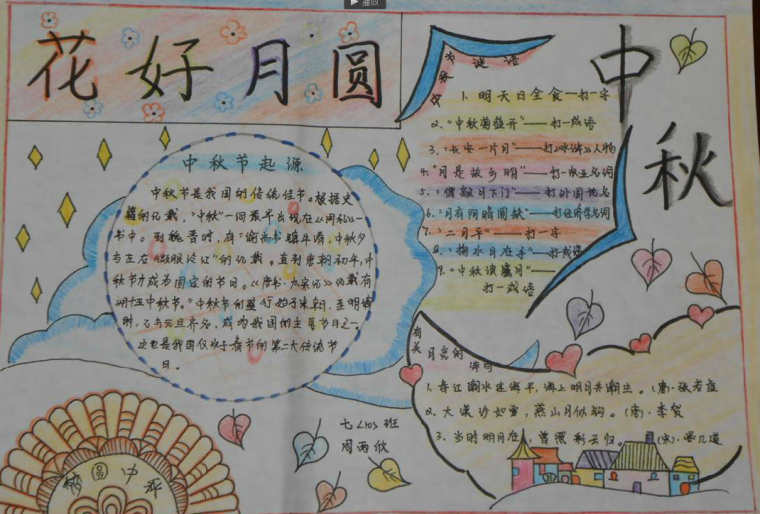 花好月圆
中秋
中秋节起源
中秋节是我国的传统佳节。根据史
籍的记载，“中秋”一词最早出现在《周礼》一
书中。到魏晋时，有“谕尚书镇牛渚，中秋夕
与左右微服泛江”的记载。直到唐朝初年，中
秋节才成为固定的节日。《唐书·太宗记》记载有
“八月十五中秋节”。中秋节的盛行始于宋朝，至明清
时，已与元旦齐名，成为我国的主要节日之一。
这也是我国仅次于春节的第二大传统节
日。
谜语
1、明天日全食—打一字
2、“中秋菊盛开”——打一成语
3、“长安一片月”——打
人物
4、“月是故乡明”——打一
名词
5、“僧敲月下门”——打外国地名
6、“月有阴晴圆缺”——打经济学名词
7、“二月平”——打一字
8、“掬水月在手”——打成语
9、“中秋谈
月”——
打一成语
有关
月亮的
诗句
1、春江潮水连海平，海上明月共潮生。（唐）·张若虚
2、大漠沙如雪，燕山月似钩。（唐）·李贺
3、当时明月在，曾照彩云归。（宋）·晏几道
班
周雨欣
中秋